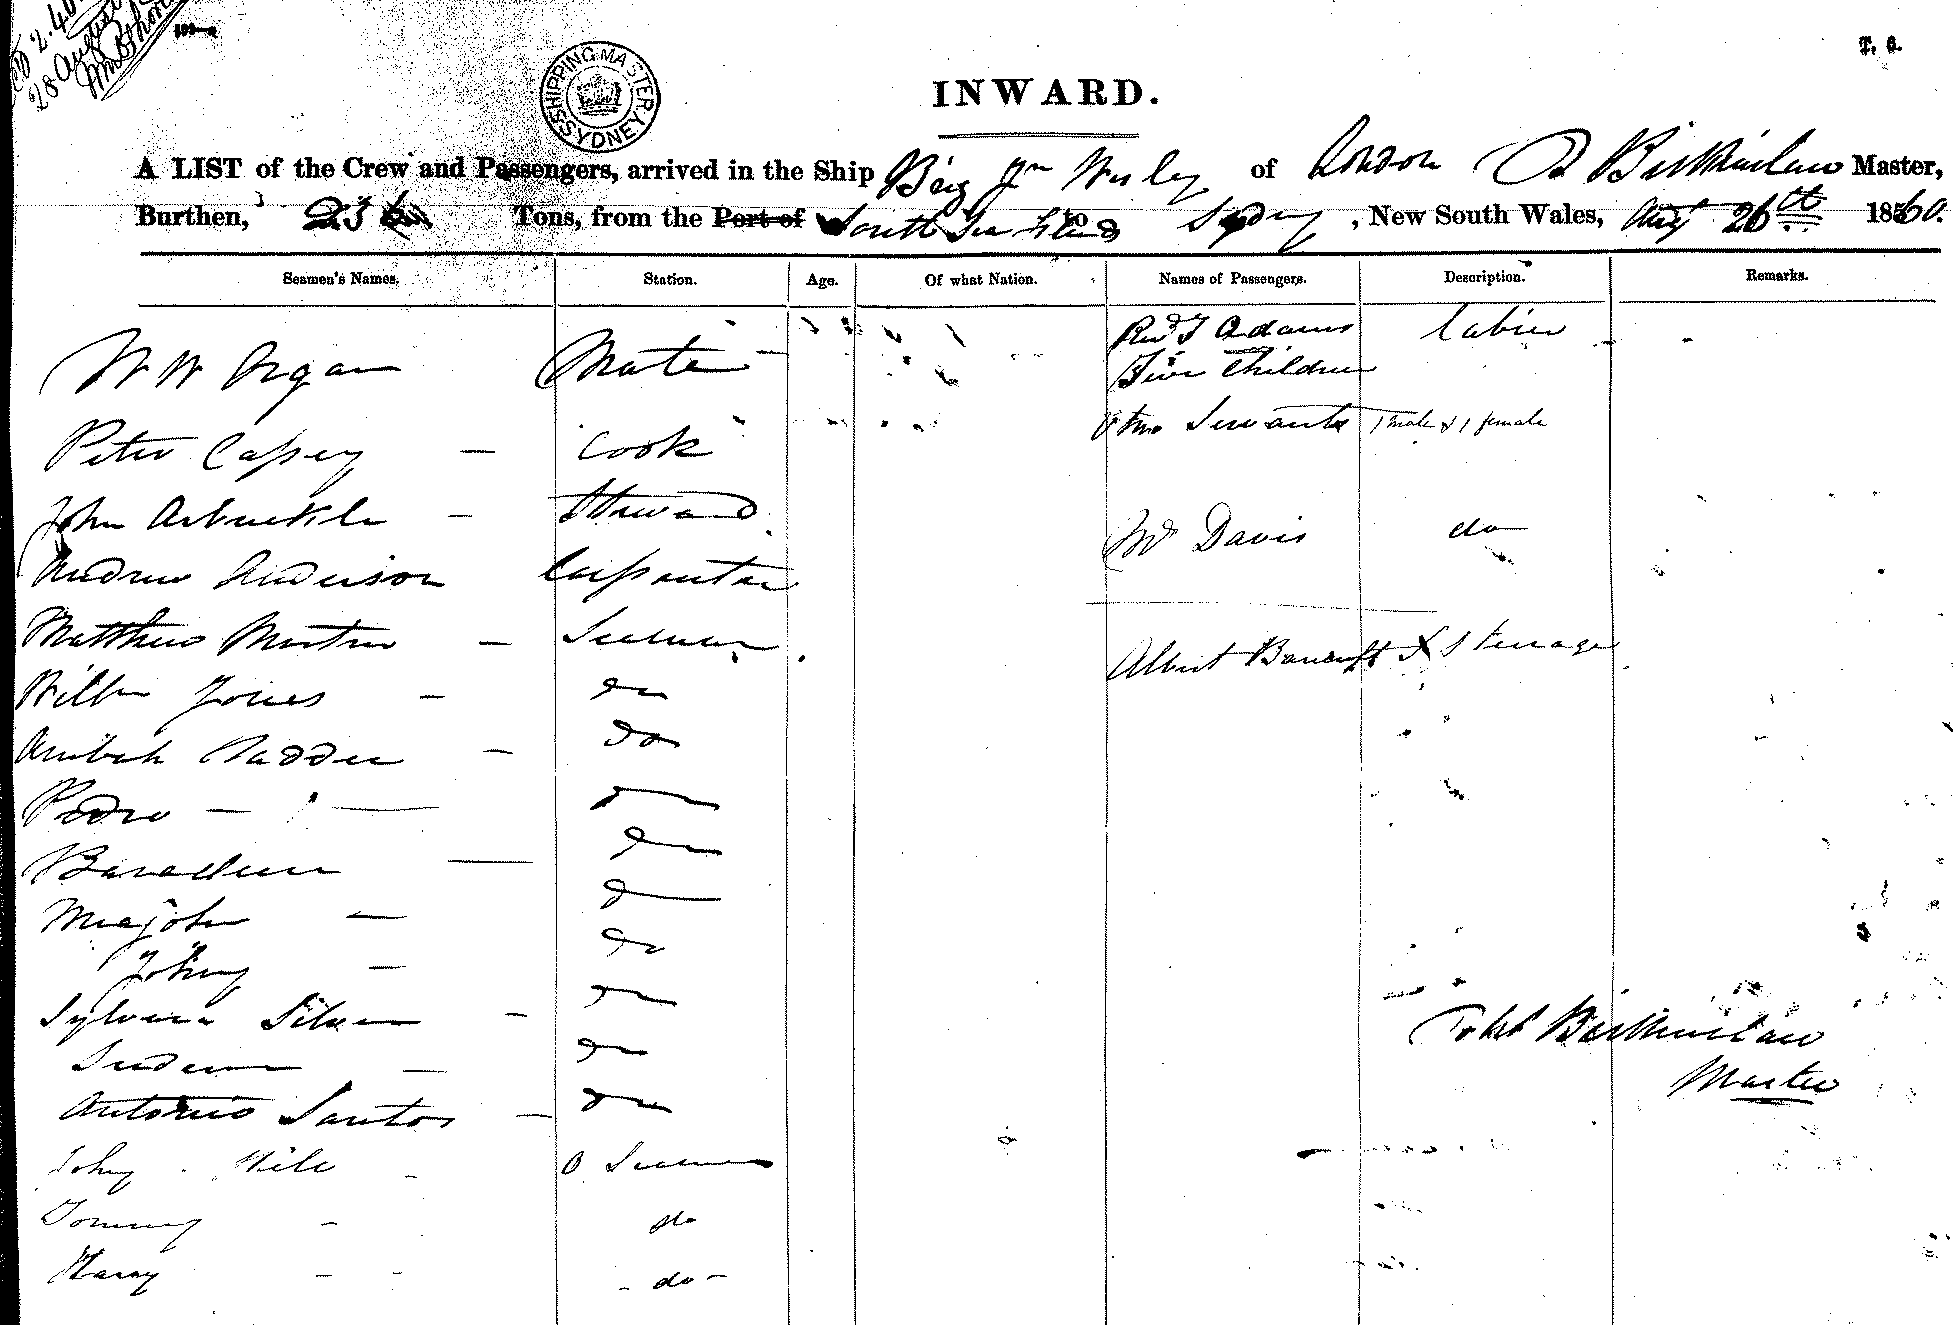 28 August
T. 6.
SHIPPING MASTER SYDNEY
INWARD.
A LIST of the Crew and Passengers, arrived in the Ship Brig Jno Wesley of London R Birkinshaw Master,
Burthen, Tons, from the Port of South Sea Islands to Sydney, New South Wales, Augt 26th 1860.
Seamen's Names. Station. Age. Of what Nation. Names of Passengers. Description. Remarks.
Revd T Adams Cabin
W W Organ Mate Five Children
& two Servants 1 male & 1 female
Peter Cassey — Cook
John Arbuckle — Steward
Mr Davis do
Andrew Anderson Carpenter
Matthew Martin — Seaman
Albert Bancroft Steerage
Willm Jones — do
do
Pedro — — do
— do
— do
Johny — do
Sylvana Silva — do
— do
Robt Birkinshaw
Master
Antonio Santos — do
Johny O Seaman
Tommy - do
Harry - - - do -